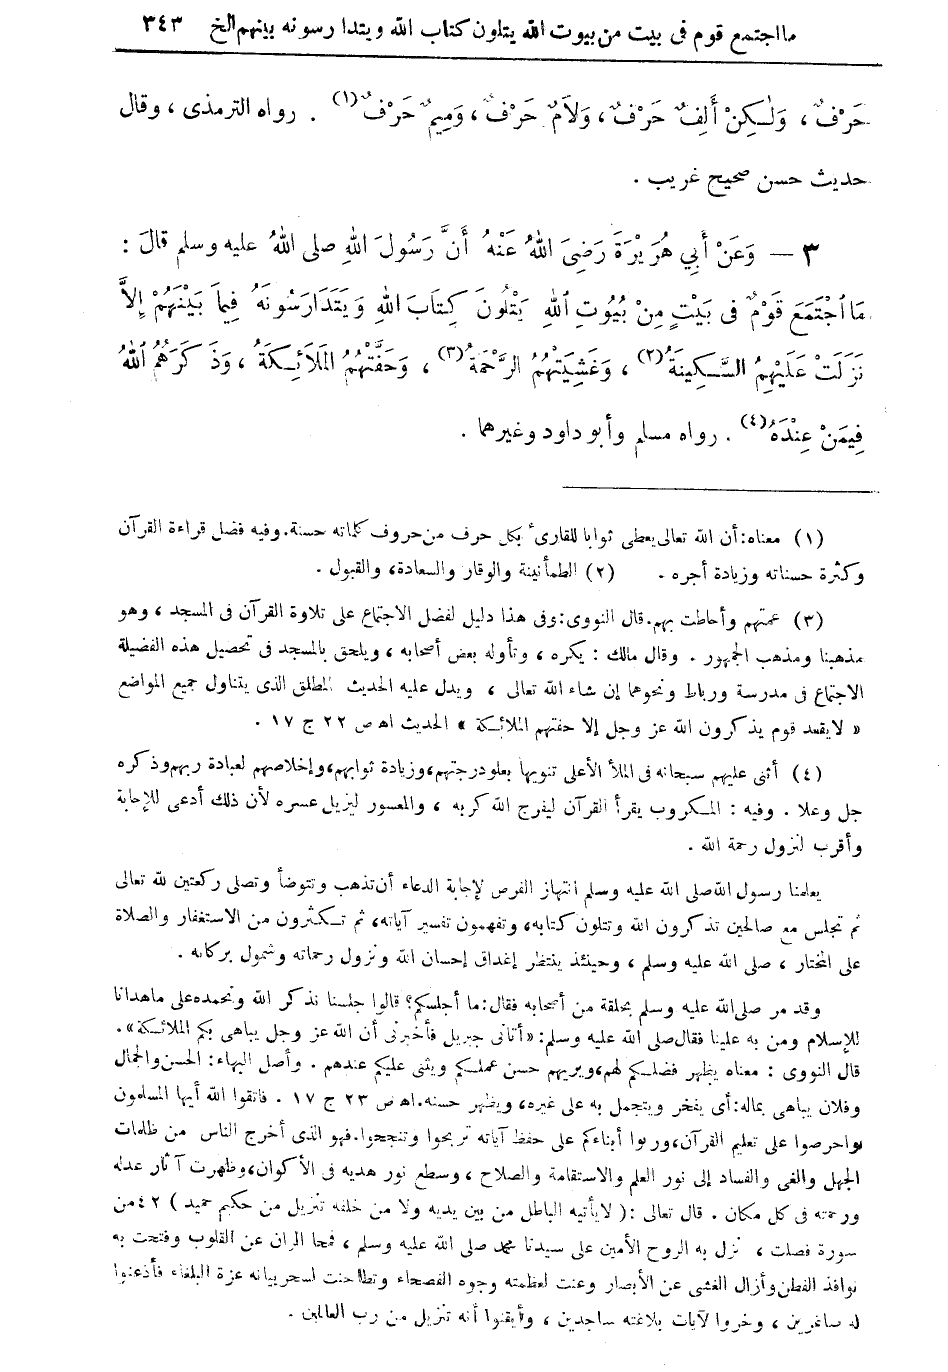 ما اجتمع قوم فى بيت من بيوت الله يتلون كتاب الله ويتدارسونه بينهم الخ ٣٤٣
حَرْفٌ، وَلٰكِنْ أَلِفٌ حَرْفٌ، وَلَامٌ حَرْفٌ، وَمِيمٌ حَرْفٌ(١). رواه الترمذى، وقال
حديث حسن صحيح غريب.
٣ — وَعَنْ أَبِي هُرَيْرَةَ رَضِىَ اللهُ عَنْهُ أَنَّ رَسُولَ اللهِ صلى اللهُ عليه وسلم قالَ:
مَا اجْتَمَعَ قَوْمٌ فى بَيْتٍ مِنْ بُيُوتِ اللهِ يَتْلُونَ كِتَابَ اللهِ وَيَتَدَارَسُونَهُ فِيمَا بَيْنَهُمْ إِلاَّ
نَزَلَتْ عَلَيْهِمُ السَّكِينَةُ(٢)، وَغَشِيَتْهُمُ الرَّحْمَةُ(٣)، وَحَفَّتْهُمُ المَلَائِكَةُ، وَذَكَرَهُمُ اللهُ
فِيمَنْ عِنْدَهُ(٤). رواه مسلم وأبو داود وغيرهما.
(١) معناه: أن الله تعالى يعطى ثوابا للقارئ بكل حرف من حروف كلماته حسنة. وفيه فضل قراءة القرآن
وكثرة حسناته وزيادة أجره. (٢) الطمأنينة والوقار والسعادة، والقبول.
(٣) عمتهم وأحاطت بهم. قال النووى: وفى هذا دليل لفضل الاجتماع على تلاوة القرآن فى المسجد، وهو
مذهبنا ومذهب الجمهور. وقال مالك: يكره، وتأوله بعض أصحابه، ويلحق بالمسجد فى تحصيل هذه الفضيلة
الاجتماع فى مدرسة ورباط ونحوهما إن شاء الله تعالى، ويدل عليه الحديث المطلق الذى يتناول جميع المواضع
« لايقعد قوم يذكرون الله عز وجل إلا حفتهم الملائكة » الحديث اه ص ٢٢ ج ١٧.
(٤) أثنى عليهم سبحانه فى الملأ الأعلى تنويها بعلو درجتهم، وزيادة ثوابهم، وإخلاصهم لعبادة ربهم وذكره
جل وعلا. وفيه: المكروب يقرأ القرآن ليفرج الله كربه، والمعسور ليزيل عسره لأن ذلك أدعى للإجابة
وأقرب لنزول رحمة الله.
يعلمنا رسول الله صلى الله عليه وسلم انتهاز الفرص لإجابة الدعاء أن تذهب وتتوضأ وتصلى ركعتين لله تعالى
ثم تجلس مع صالحين تذكرون الله وتتلون كتابه، وتفهمون تفسير آياته، ثم تكثرون من الاستغفار والصلاة
على المختار، صلى الله عليه وسلم، وحينئذ ينتظر إغداق إحسان الله ونزول رحماته وشمول بركاته.
وقد مر صلى الله عليه وسلم بحلقة من أصحابه فقال: ما أجلسكم؟ قالوا جلسنا نذكر الله ونحمده على ماهدانا
للإسلام ومن به علينا فقال صلى الله عليه وسلم: «أتانى جبريل فأخبرنى أن الله عز وجل يباهى بكم الملائكة».
قال النووى: معناه يظهر فضلكم لهم، ويريهم حسن عملكم ويثنى عليكم عندهم. وأصل البهاء: الحسن والجمال
وفلان يباهى بماله: أى يفخر ويتجمل به على غيره، ويظهر حسنه. اه ص ٢٣ ج ١٧. فاتقوا الله أيها المسلمون
واحرصوا على تعليم القرآن، وربوا أبناءكم على حفظ آياته تربحوا وتنجحوا. فهو الذى أخرج الناس من ظلمات
الجهل والغى والفساد إلى نور العلم والاستقامة والصلاح، وسطع نور هديه فى الأكوان، وظهرت آثار عدله
ورحمته فى كل مكان. قال تعالى: (لا يأتيه الباطل من بين يديه ولا من خلفه تنزيل من حكيم حميد) ٤٢ من
سورة فصلت، نزل به الروح الأمين على سيدنا محمد صلى الله عليه وسلم، فمحا الران عن القلوب وفتحت به
نوافذ الفطن وأزال الغشى عن الأبصار وعنت لعظمته وجوه الفصحاء وتطامنت لسحر بيانه عزة البلغاء فأذعنوا
له صاغرين، وخروا لآيات بلاغته ساجدين، وأيقنوا أنه تنزيل من رب العالمين.